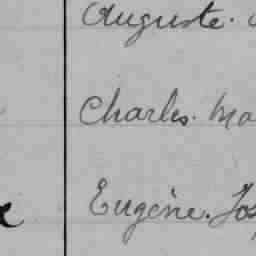 Auguste.
Charles. Ma
Eugène. Jos